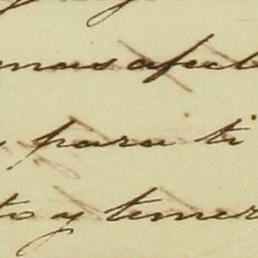 mas afect
para ti
to y tener